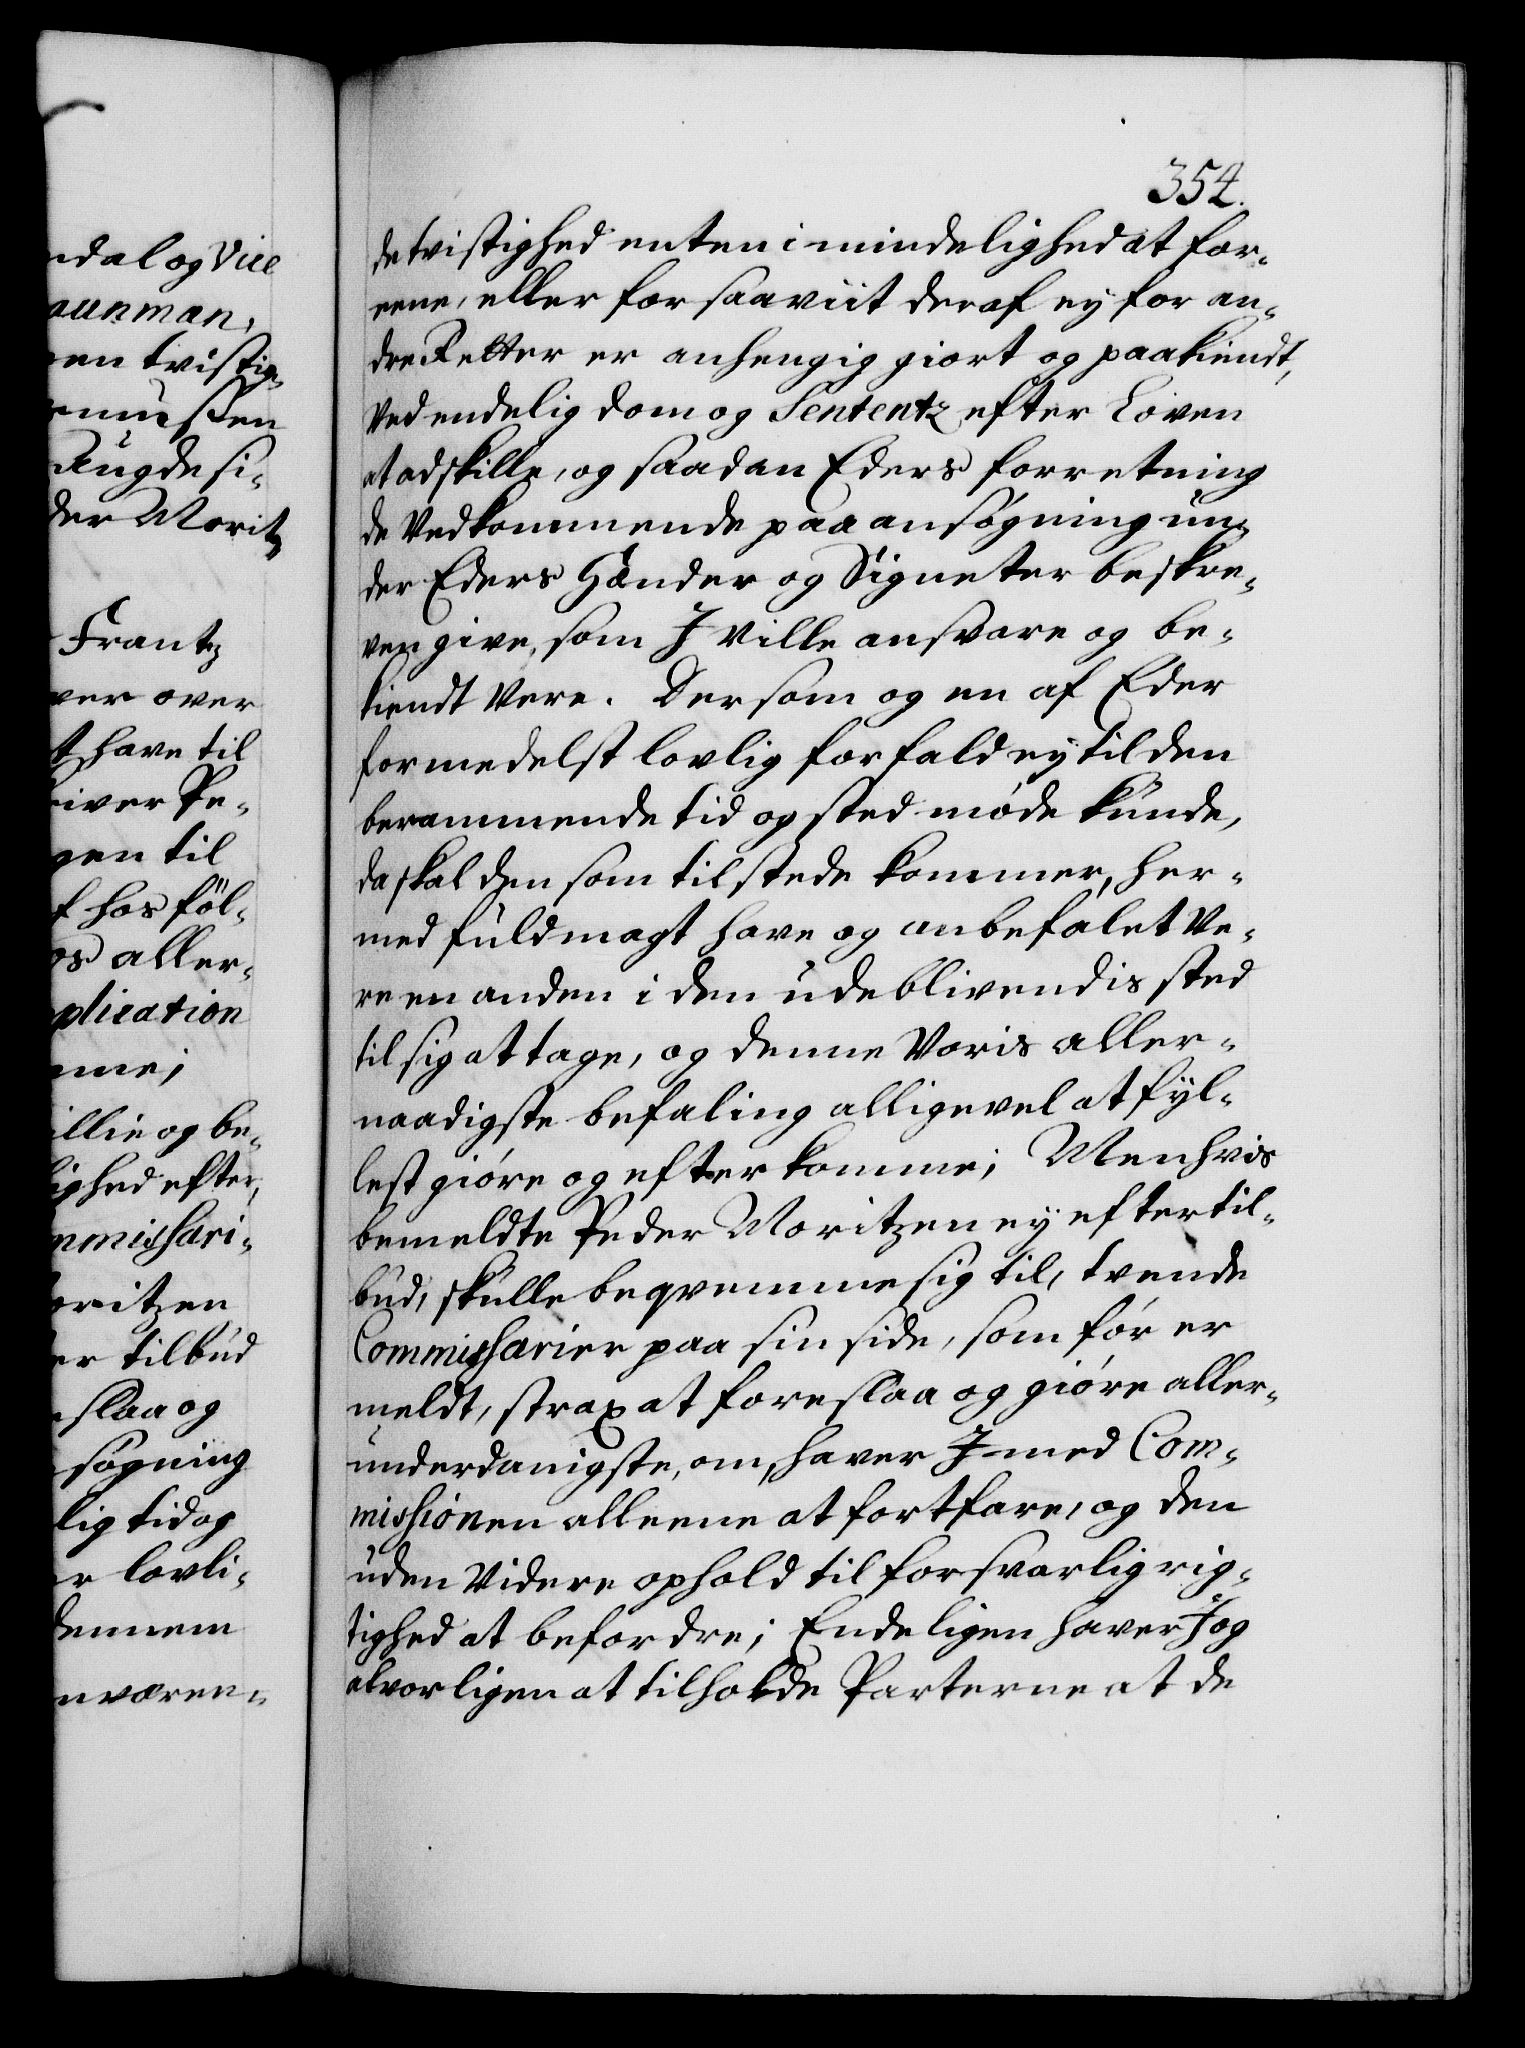 ndal og Vice
aunman,
en tvistig-
mussen
Laugde si-
der Moritz
Frantz
ver over
t have til
river Pe-
gen til
f hos föl-
os aller-
plication
me;
illie og be-
ighed efter,
mmissari-
oritzen
er tilbud
slaa og
søgning
lig tid og
r lovli-
dennem
nværen-
354.
de tvistighed enten i mindelighed at for-
eene, eller for saaviit deraf ey for an-
dre Retter er anhengig giort og paakiendt,
Ved endelig dom og Sententz efter Loven
at adskille, og saadan Eders forretning
de Vedkommende paa ansøgning un-
der Eders Hænder og Signeter beskre-
ven give, som I ville ansvare og be-
kiendt Vere. Dersom og en af Eder
formedelst lovlig forfald ey til den
berammende tid og sted møde kunde,
da skal den som tilstede kommer, her-
med fuldmagt have og anbefalet Ve-
re en anden i den udeblivendis sted
til sig at tage, og denne Voris aller-
naadigste befaling alligevel at fyl-
lest giöre og efterkomme; Men hvis
bemeldte Peder Moritzen ey efter til-
bud, skulle beqvemme sig til, tvende
Commissarier paa sin side, som før er
meldt, strax at foreslaa og giöre aller-
underdanigste, om, haver I med Com-
missionen alleene at fortfare, og den
uden Videre ophold til forsvarlig rig-
tighed at befordre; Endeligen haver I og
alvorligen at tilholde Parterne at de